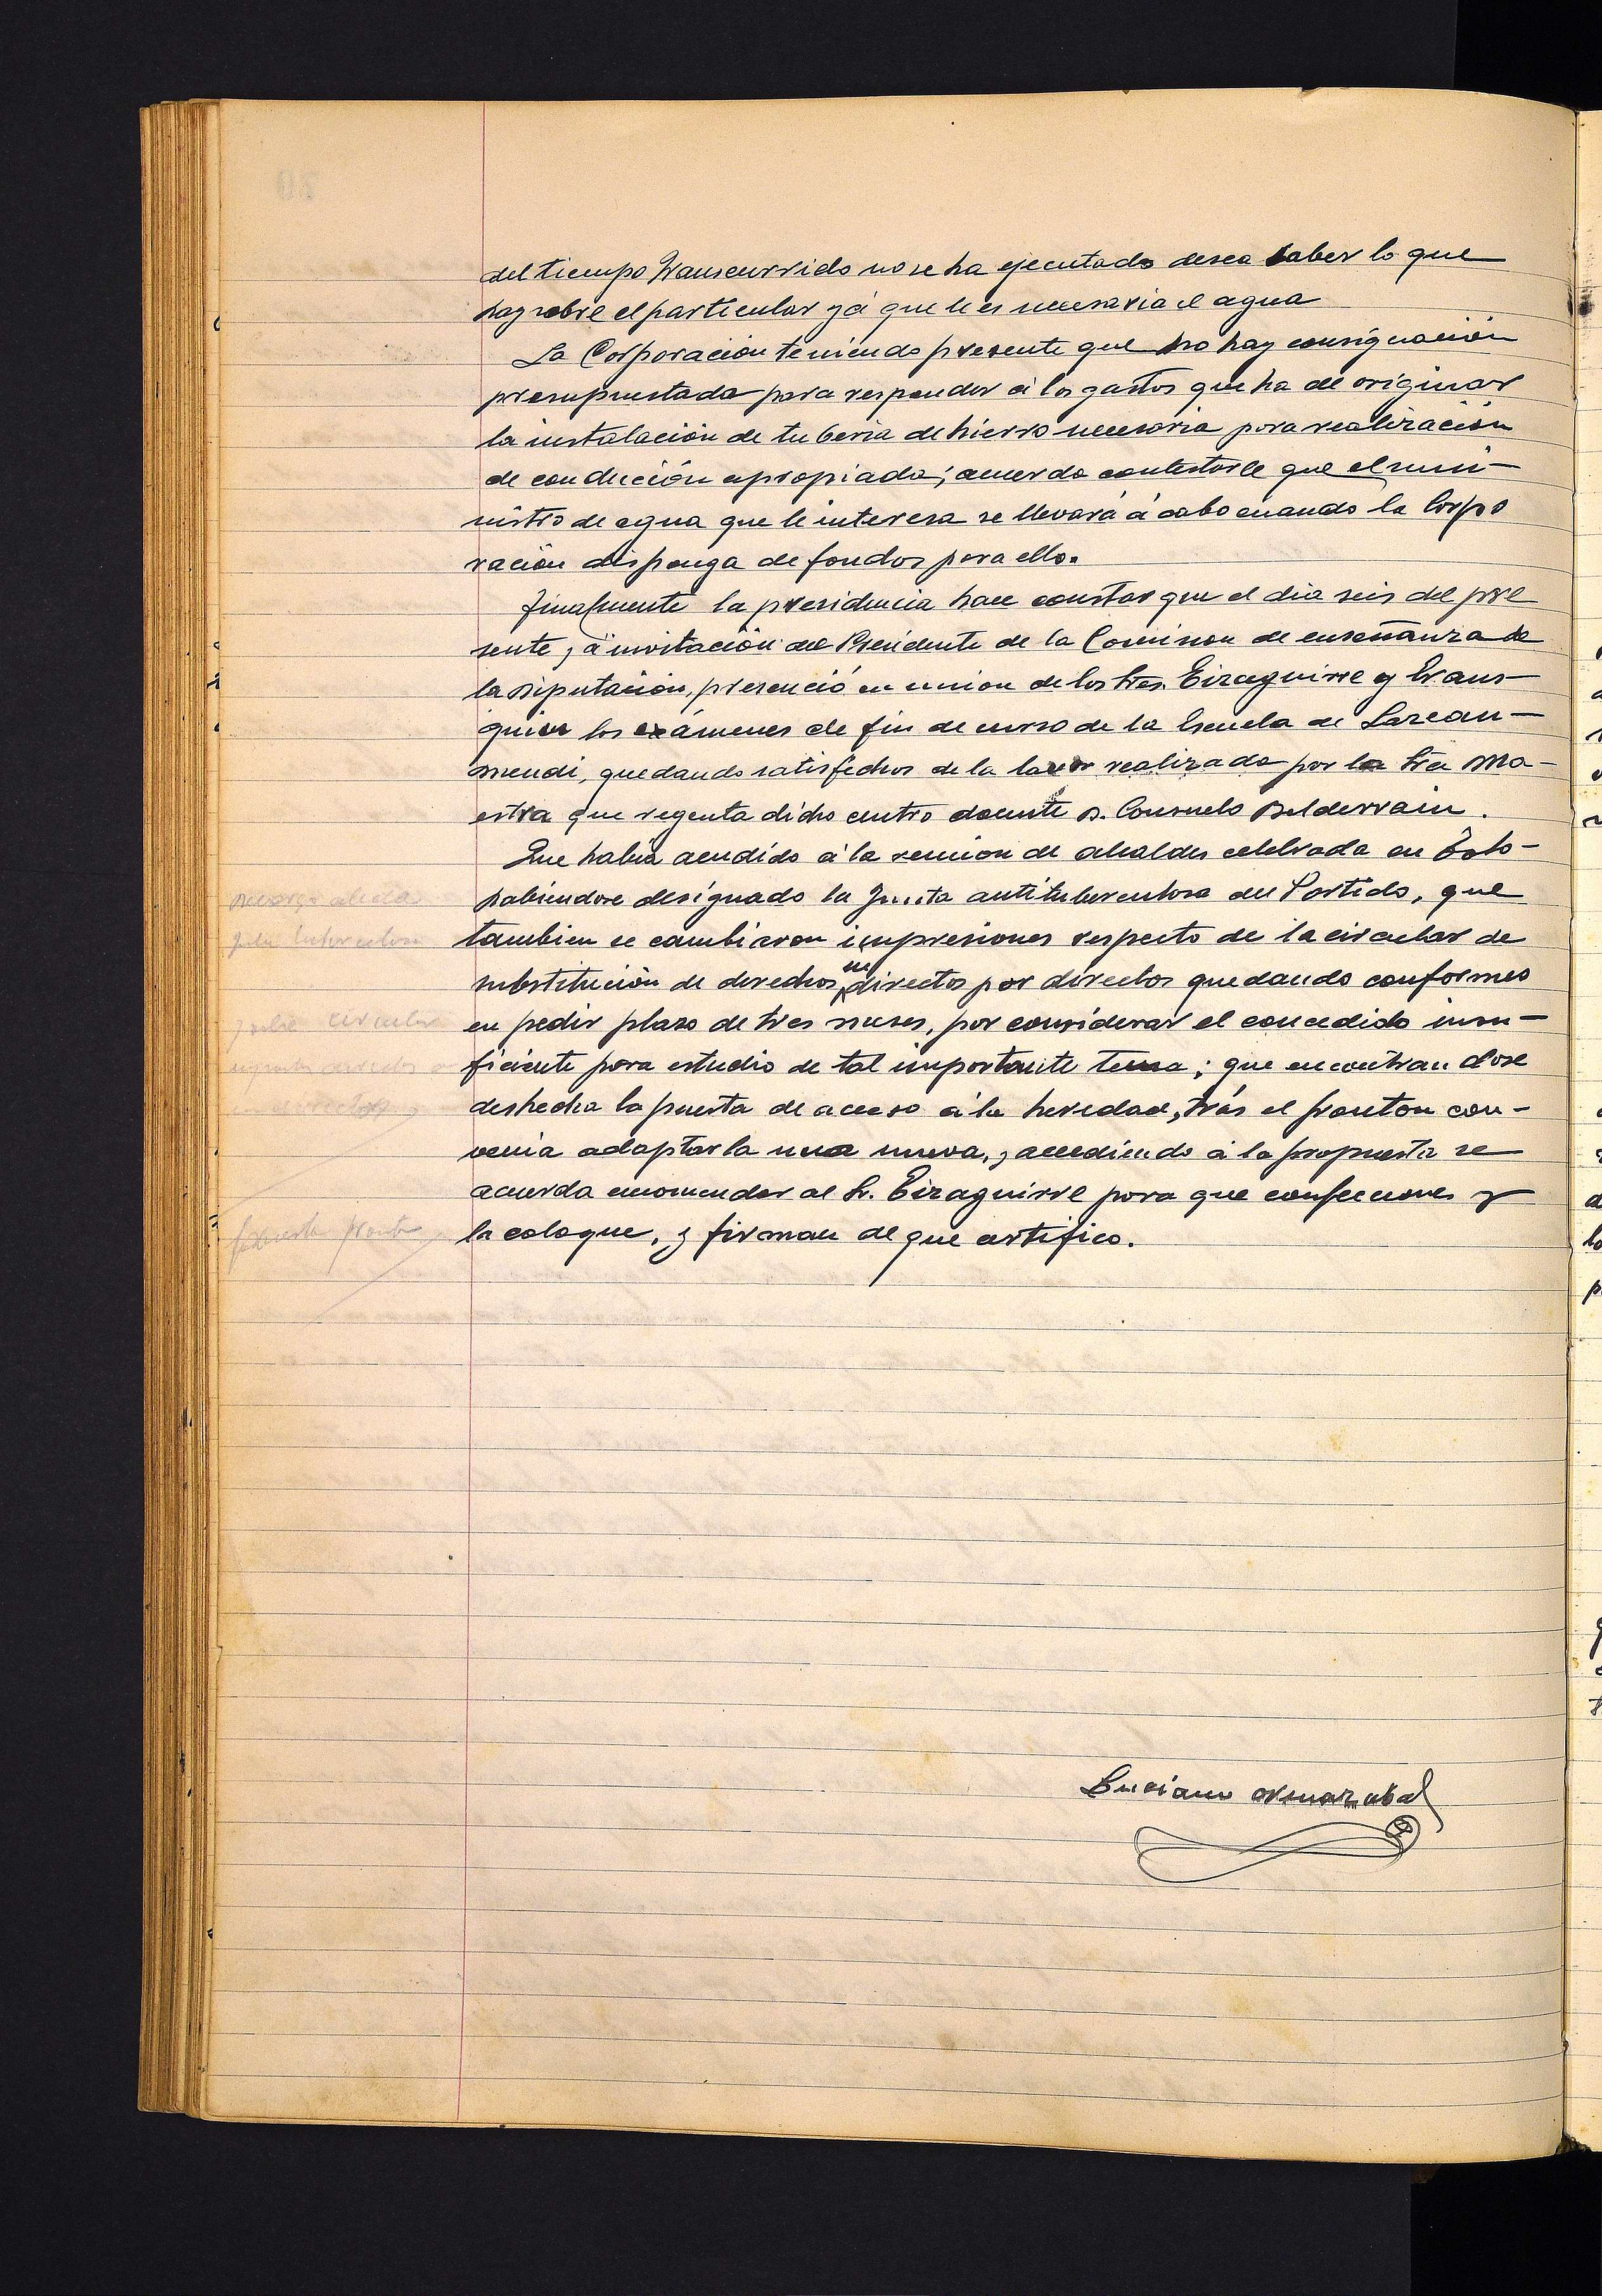 del tiempo transcurrido no se ha ejecutado desea saber lo que
hay sobre el particular yá que le es necesaria el agua
La Corporación teniendo presente que no hay consignación
presupuestada para responder á los gastos que ha de originar
la instalación de tuberia de hierro necesaria para realización
de conducción apropiada; acuerda contestarle que el sumi-
nistro de agua que le interesa se llevará á cabo cuando la Corpo
ración disponga de fondos para ello.
Finalmente la presidencia hace constar que el dia seis del pre
sente, á invitación del Presidente de la Comision de enseñanza de
la Diputación, presenció en union de los Sres. Eizaguirre y Irans-
quin los exámenes de fin de curso de la Escuela de Larean-
mendi, quedando satisfechos de la labor realizada por la Sra Ma-
estra que regenta dicho centro docente D. Consuelo Belderrain.
Que había acudido á la reunion de alcaldes celebrada en Tolo-
habiendose designado la Junta antituberculosa del Partido, que
tambien se cambiaron impresiones respecto de la circular de
substitución de derechos indirectos por directos quedando conformes
en pedir plazo de tres meses, por considerar el concedido insu-
ficiente para estudio de tal importante tema; que encontrandose
deshecha la puerta de acceso á la heredad, trás el fronton con-
venia adaptarla una nueva, y accediendo á la propuesta se
acuerda encomendar al Sr. Eizaguirre para que confeccione y
la coloque, y firman de que certifico.
Luciano Amarabal